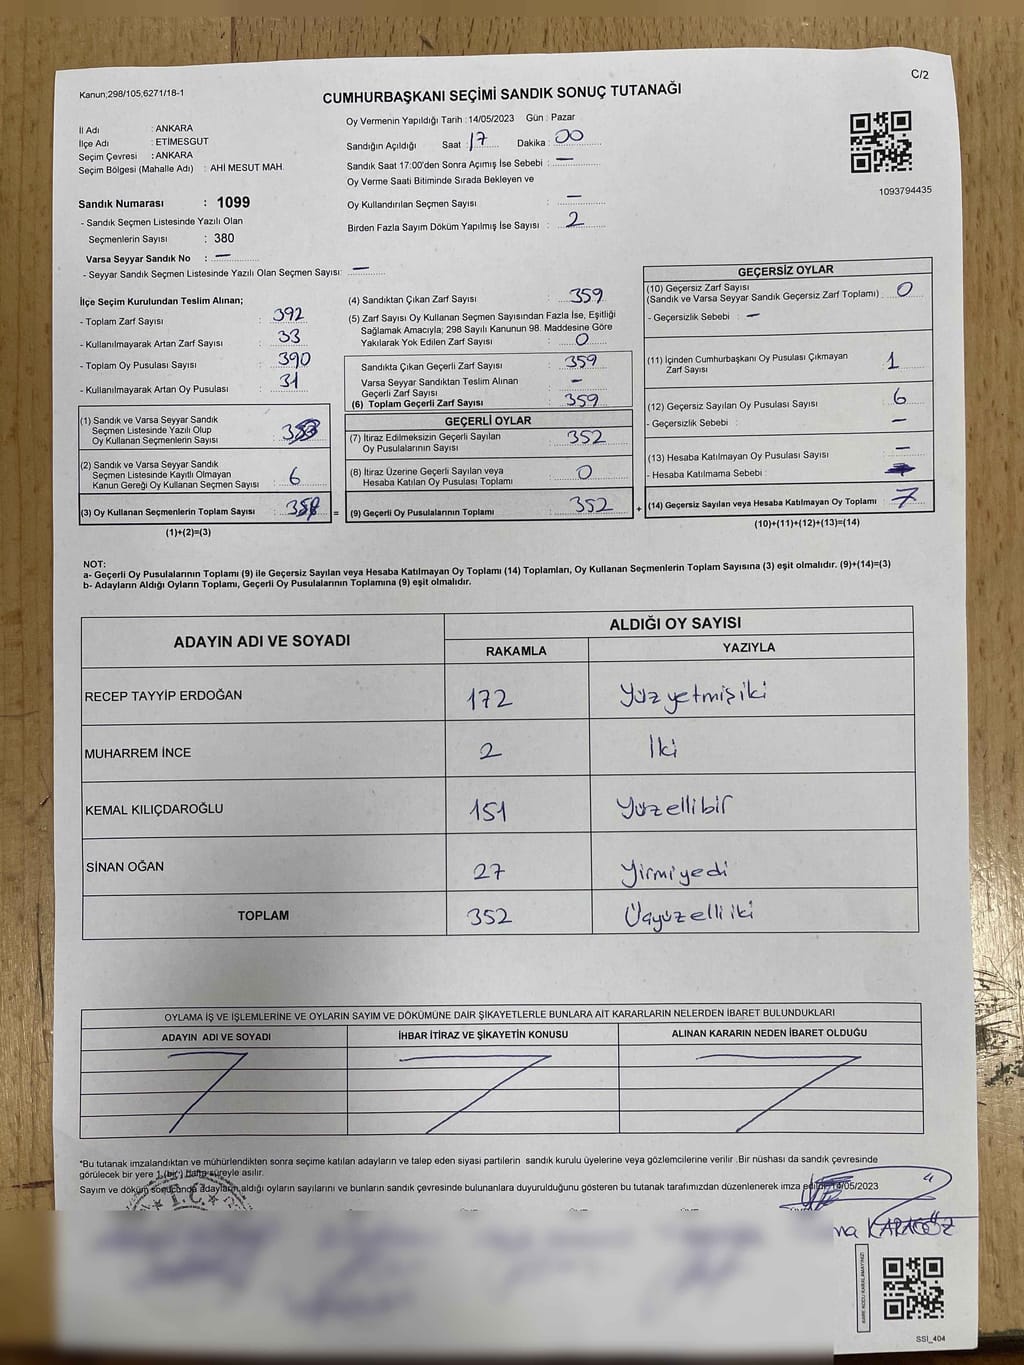 C/2
Kanun;298/105,6271/18-1
CUMHURBAŞKANI SEÇİMİ SANDIK SONUÇ TUTANAĞI
İl Adı : ANKARA
İlçe Adı : ETİMESGUT
Seçim Çevresi : ANKARA
Seçim Bölgesi (Mahalle Adı) : AHİ MESUT MAH.
Oy Vermenin Yapıldığı Tarih : 14/05/2023 Gün : Pazar
Sandığın Açıldığı Saat : 17 Dakika : 00
Sandık Saat 17:00'den Sonra Açımış İse Sebebi : —
Oy Verme Saati Bitiminde Sırada Bekleyen ve
Oy Kullandırılan Seçmen Sayısı : —
Birden Fazla Sayım Döküm Yapılmış İse Sayısı : 2
1093794435
Sandık Numarası : 1099
- Sandık Seçmen Listesinde Yazılı Olan
Seçmenlerin Sayısı : 380
Varsa Seyyar Sandık No : —
- Seyyar Sandık Seçmen Listesinde Yazılı Olan Seçmen Sayısı: —
İlçe Seçim Kurulundan Teslim Alınan;
- Toplam Zarf Sayısı : 392
- Kullanılmayarak Artan Zarf Sayısı : 33
- Toplam Oy Pusulası Sayısı : 390
- Kullanılmayarak Artan Oy Pusulası : 31
(1) Sandık ve Varsa Seyyar Sandık
Seçmen Listesinde Yazılı Olup
Oy Kullanan Seçmenlerin Sayısı :
(2) Sandık ve Varsa Seyyar Sandık
Seçmen Listesinde Kayıtlı Olmayan
Kanun Gereği Oy Kullanan Seçmen Sayısı : 6
(3) Oy Kullanan Seçmenlerin Toplam Sayısı :
(1)+(2)=(3)
(4) Sandıktan Çıkan Zarf Sayısı : 359
(5) Zarf Sayısı Oy Kullanan Seçmen Sayısından Fazla İse, Eşitliği
Sağlamak Amacıyla; 298 Sayılı Kanunun 98. Maddesine Göre
Yakılarak Yok Edilen Zarf Sayısı : 0
Sandıkta Çıkan Geçerli Zarf Sayısı : 359
Varsa Seyyar Sandıktan Teslim Alınan
Geçerli Zarf Sayısı : —
(6) Toplam Geçerli Zarf Sayısı : 359
GEÇERLİ OYLAR
(7) İtiraz Edilmeksizin Geçerli Sayılan
Oy Pusulalarının Sayısı : 352
(8) İtiraz Üzerine Geçerli Sayılan veya
Hesaba Katılan Oy Pusulası Toplamı : 0
= (9) Geçerli Oy Pusulalarının Toplamı : 352 +
GEÇERSİZ OYLAR
(10) Geçersiz Zarf Sayısı
(Sandık ve Varsa Seyyar Sandık Geçersiz Zarf Toplamı) : 0
- Geçersizlik Sebebi : —
(11) İçinden Cumhurbaşkanı Oy Pusulası Çıkmayan
Zarf Sayısı : 1
(12) Geçersiz Sayılan Oy Pusulası Sayısı : 6
- Geçersizlik Sebebi : —
(13) Hesaba Katılmayan Oy Pusulası Sayısı : —
- Hesaba Katılmama Sebebi :
(14) Geçersiz Sayılan veya Hesaba Katılmayan Oy Toplamı : 7
(10)+(11)+(12)+(13)=(14)
NOT:
a- Geçerli Oy Pusulalarının Toplamı (9) ile Geçersiz Sayılan veya Hesaba Katılmayan Oy Toplamı (14) Toplamları, Oy Kullanan Seçmenlerin Toplam Sayısına (3) eşit olmalıdır. (9)+(14)=(3)
b- Adayların Aldığı Oyların Toplamı, Geçerli Oy Pusulalarının Toplamına (9) eşit olmalıdır.
ADAYIN ADI VE SOYADI ALDIĞI OY SAYISI
RAKAMLA YAZIYLA
RECEP TAYYİP ERDOĞAN 172 Yüz yetmiş iki
MUHARREM İNCE 2 İki
KEMAL KILIÇDAROĞLU 151 Yüz elli bir
SİNAN OĞAN 27 Yirmi yedi
TOPLAM 352 Üçyüz elli iki
OYLAMA İŞ VE İŞLEMLERİNE VE OYLARIN SAYIM VE DÖKÜMÜNE DAİR ŞİKAYETLERLE BUNLARA AİT KARARLARIN NELERDEN İBARET BULUNDUKLARI
ADAYIN ADI VE SOYADI İHBAR İTİRAZ VE ŞİKAYETİN KONUSU ALINAN KARARIN NEDEN İBARET OLDUĞU
*Bu tutanak imzalandıktan ve mühürlendikten sonra seçime katılan adayların ve talep eden siyasi partilerin sandık kurulu üyelerine veya gözlemcilerine verilir .Bir nüshası da sandık çevresinde
görülecek bir yere 1 (bir ) hafta süreyle asılır.
Sayım ve döküm sonucunda adayların aldığı oyların sayılarını ve bunların sandık çevresinde bulunanlara duyurulduğunu gösteren bu tutanak tarafımızdan düzenlenerek imza edildi. 14/05/2023
T.C.
KARAGÖZ
SSI_404